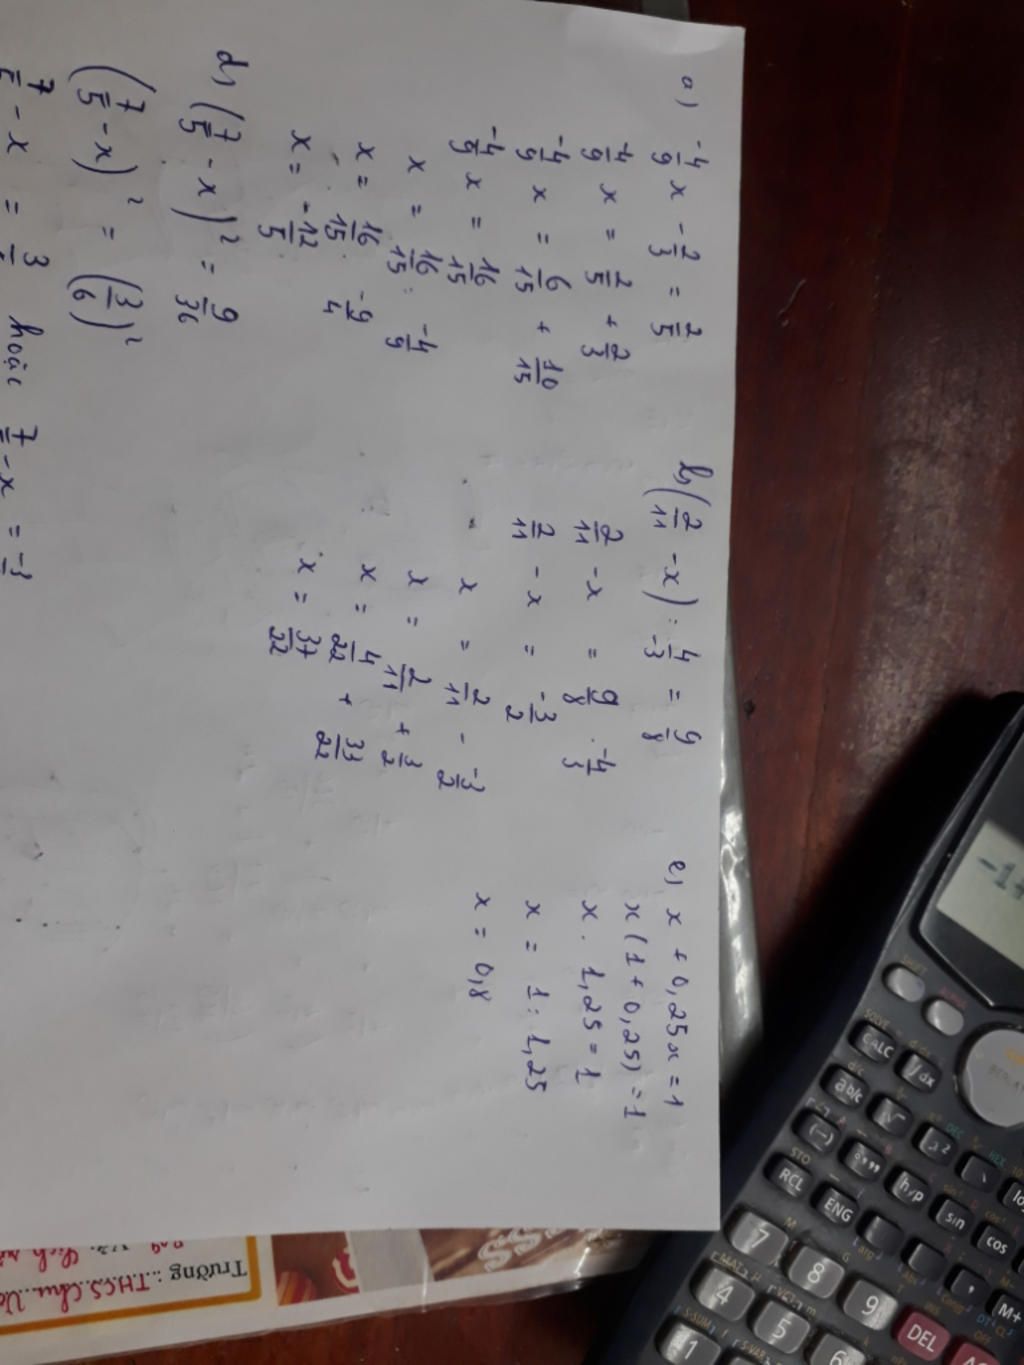 a) -4/9 x - 2/3 = 2/5
-4/9 x = 2/5 + 2/3
-4/9 x = 6/15 + 10/15
-4/9 x = 16/15
x = 16/15 : -4/9
x = 16/15 . -9/4
x = -12/5
b) (2/11 - x) : 4/-3 = 9/8
2/11 - x = 9/8 . -4/3
2/11 - x = -3/2
x = 2/11 - -3/2
x = 2/11 + 3/2
x = 4/22 + 33/22
x = 37/22
e) x + 0,25x = 1
x (1 + 0,25) = 1
x . 1,25 = 1
x = 1 : 1,25
x = 0,8
d) (7/5 - x)² = 9/36
(7/5 - x)² = (3/6)²
7/5 - x = 3 hoặc 7 - x = -3
Trường : THCS Chu
SHIFT
ALPHA
SOLVE
CALC
∫dx
ab/c
√
x²
(-)
°,,,
hyp
sin
cos
STO
RCL
ENG
M+
7
8
9
DEL
4
5
6
1